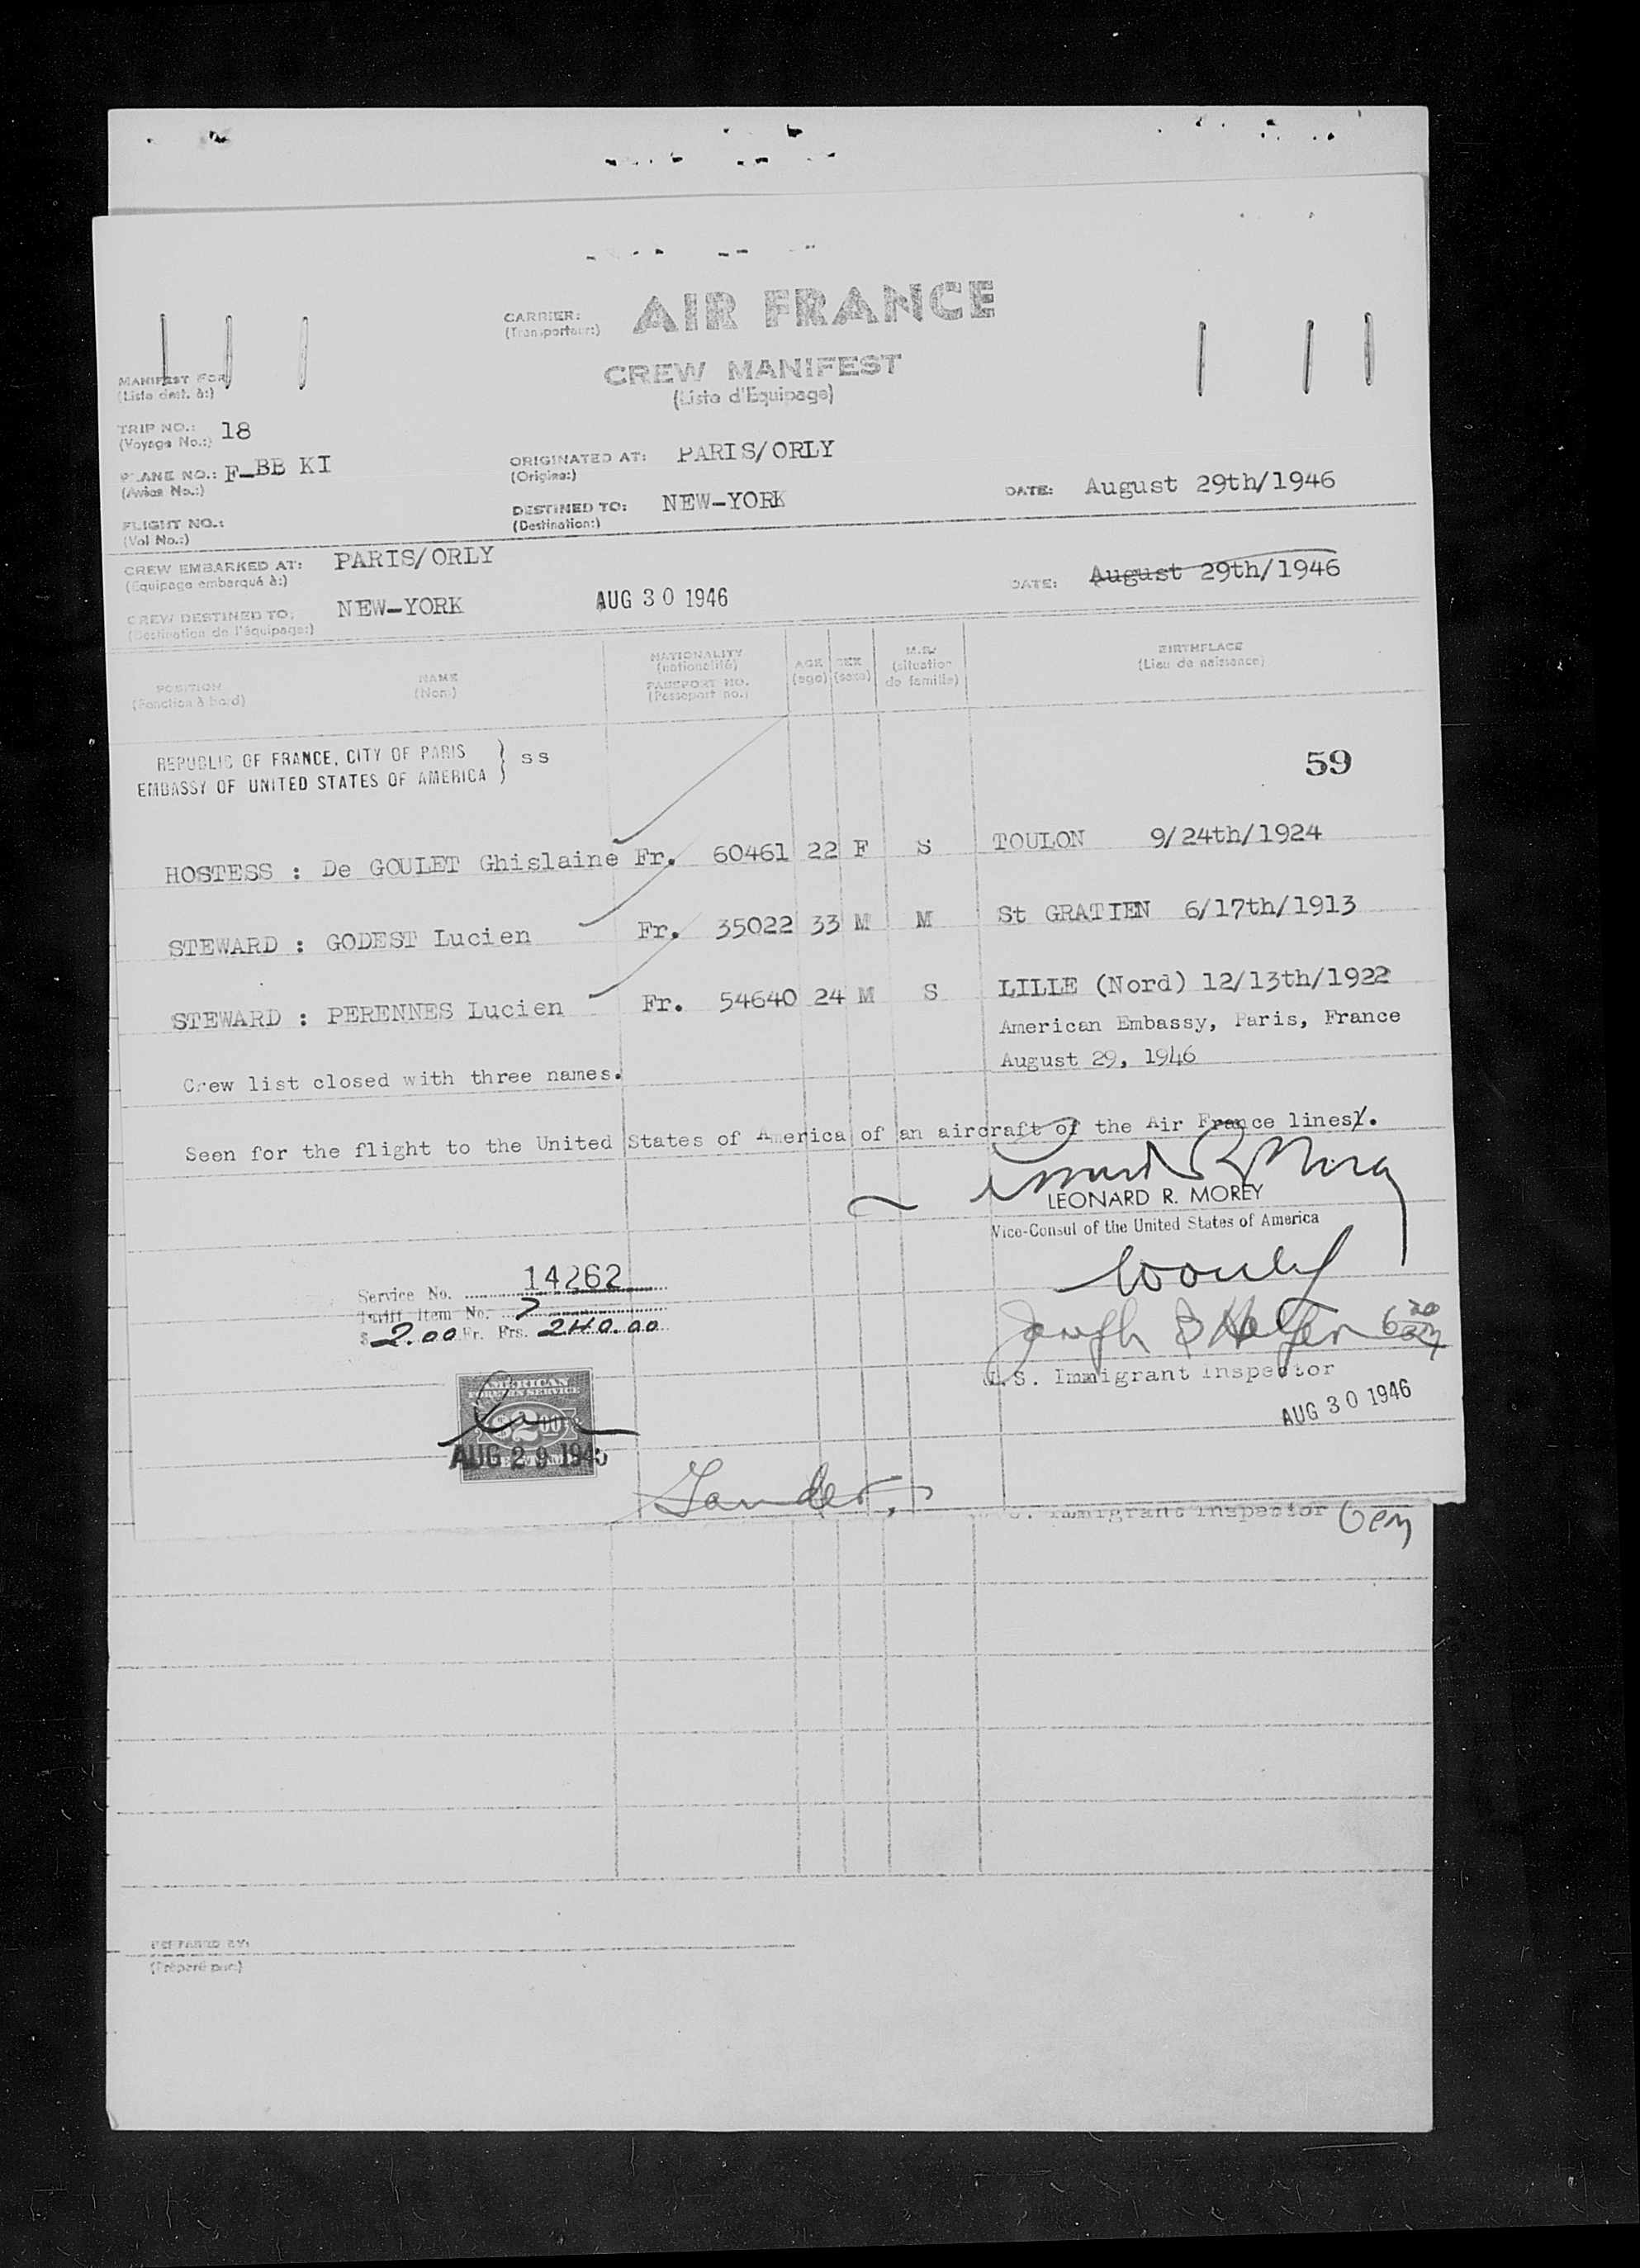 CARRIER: AIR FRANCE
(Transporteur:)
CREW MANIFEST
(Liste d'Equipage)
MANIFEST FOR
(Liste dest. à:)
TRIP NO.: 18
(Voyage No.:)
PLANE NO.: F-BB KI
(Avion No.:)
FLIGHT NO.:
(Vol No.:)
ORIGINATED AT: PARIS/ORLY
(Origine:)
DESTINED TO: NEW-YORK
(Destination:)
DATE: August 29th/1946
CREW EMBARKED AT: PARIS/ORLY
(Equipage embarqué à:)
DATE: August 29th/1946
CREW DESTINED TO: NEW-YORK AUG 30 1946
(Destination de l'équipage:)
POSITION
(Fonction à bord)
NAME
(Nom)
NATIONALITY
(nationalité)
PASSPORT NO.
(Passeport no.)
AGE
(age)
SEX
(sexe)
M.S.
(situation
de famille)
BIRTHPLACE
(Lieu de naissance)
REPUBLIC OF FRANCE, CITY OF PARIS
EMBASSY OF UNITED STATES OF AMERICA } SS
59
HOSTESS : De GOULET Ghislaine Fr. 60461 22 F S TOULON 9/24th/1924
STEWARD : GODEST Lucien Fr. 35022 33 M M St GRATIEN 6/17th/1913
STEWARD : PERENNES Lucien Fr. 54640 24 M S LILLE (Nord) 12/13th/1922
American Embassy, Paris, France
August 29, 1946
Crew list closed with three names.
Seen for the flight to the United States of America of an aircraft of the Air France lines.
LEONARD R. MOREY
Vice-Consul of the United States of America
Service No. 14262
Tariff Item No. 7
$ 2.00 Fr. Frs. 240.00
U.S. Immigrant Inspector
AUG 30 1946
AMERICAN
FOREIGN SERVICE
$2.00
AUG 29 1946
Immigrant Inspector
PREPARED BY:
(Préparé par:)